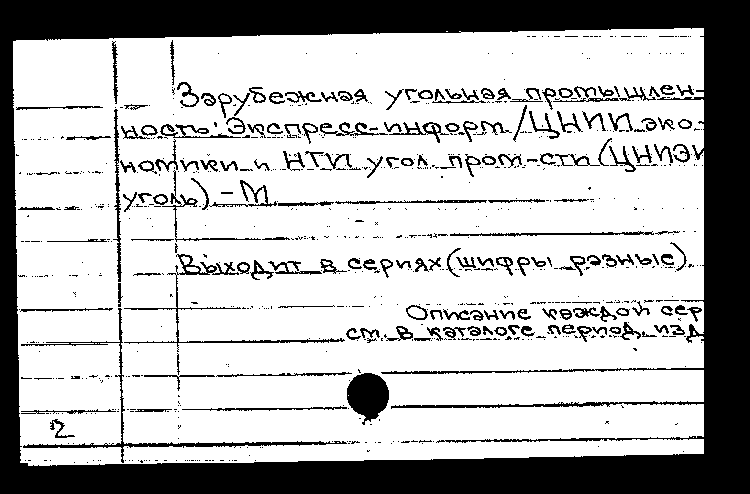 Зарубежная угольная промышлен-
ность: Экспресс-информ / ЦНИИ эко-
номики и НТИ угол. пром-сти (ЦНИЭИ
уголь). - М.
Выходит в сериях (шифры разные).
Описание каждой сер
см. в каталоге период. изд.
2